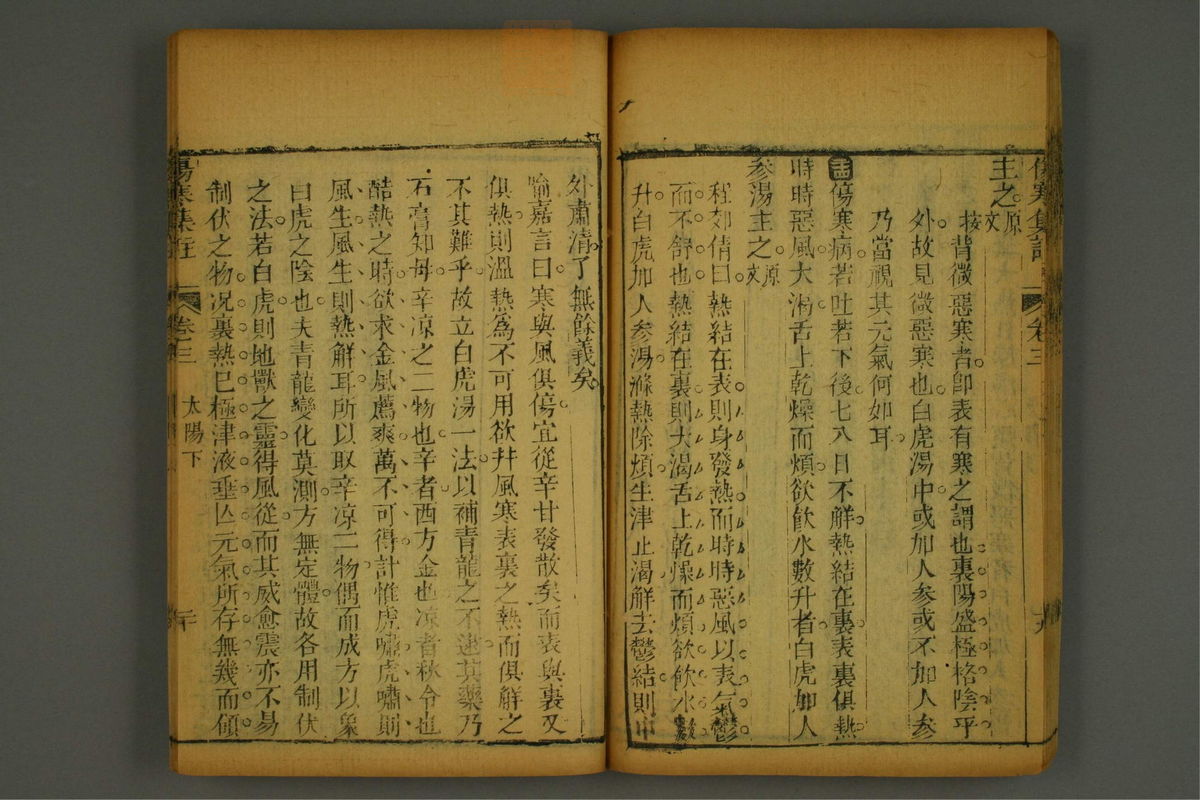 傷寒集註
卷三
十九
主之原文
按背微惡寒者卽表有寒之謂也裏陽盛極格陰乎
外故見微惡寒也白虎湯中或加人參或不加人參
乃當視其元氣何如耳
傷寒病若吐若下後七八日不解熱結在裏表裏俱熱
時時惡風大渴舌上乾燥而煩欲飮水數升者白虎加人
參湯主之原文
程郊倩曰熱結在表則身發熱而時時惡風以表氣鬱
而不舒也熱結在裏則大渴舌上乾燥而煩欲飮水數
升白虎加人參湯滌熱除煩生津止渴解去鬱結則中
外肅淸了無餘義矣
喻嘉言曰寒與風俱傷宜從辛甘發散矣而表與裏又
俱熱則溫熱爲不可用欲幷風寒表裏之熱而俱解之
不其難乎故立白虎湯一法以補靑龍之不逮其藥乃
石膏知母辛凉之二物也辛者西方金也凉者秋令也
酷熱之時欲求金風薦爽萬不可得計惟虎嘯虎嘯則
風生風生則熱解耳所以取辛凉二物偶而成方以象
曰虎之陰也夫靑龍變化莫測方無定體故各用制伏
之法若白虎則地獸之靈得風從而其威愈震亦不易
制伏之物况裏熱已極津液垂亾元氣所存無幾而傾
傷寒集註
卷三
太陽下
二十